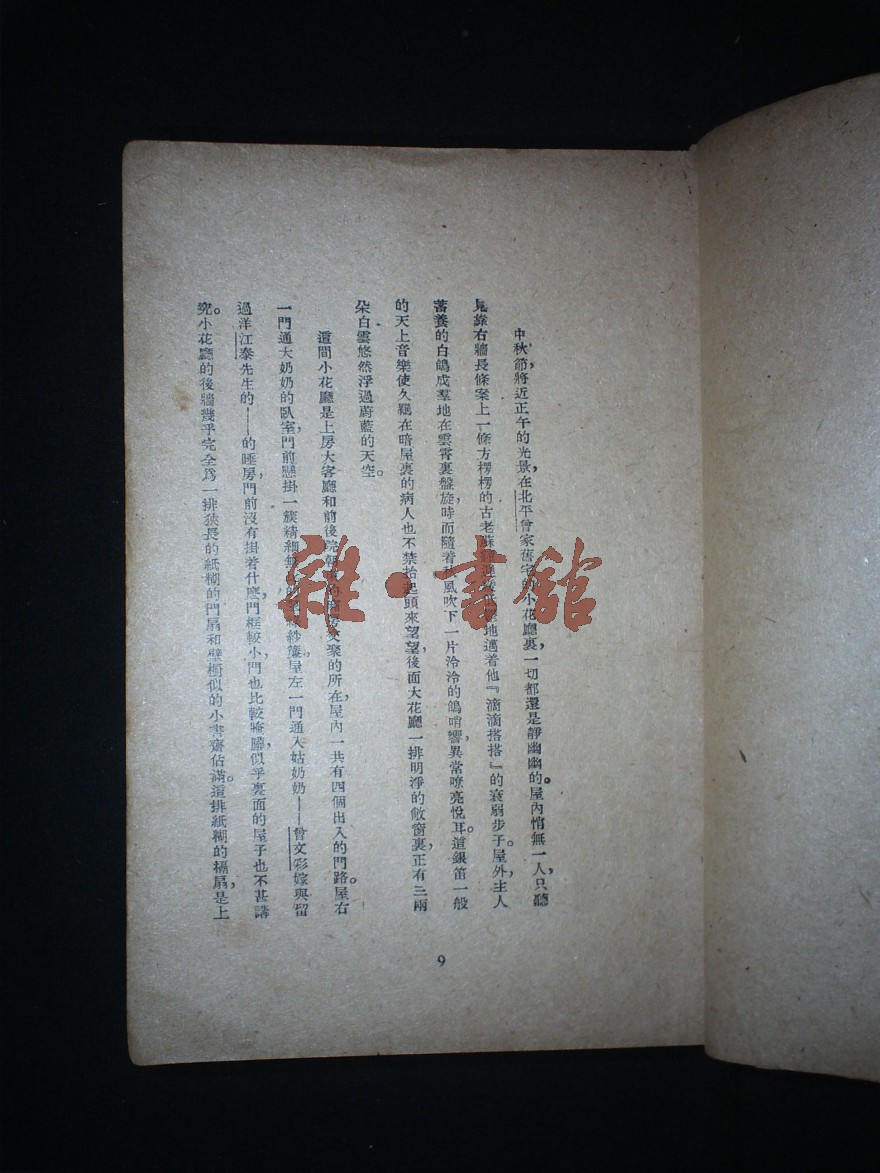 中秋節，將近正午的光景，在北平曾家舊宅的小花廳裏，一切都還是靜幽幽的。屋內悄無一人，只聽
見靠右牆長條案上一條方楞楞的古老蘇鐘遲緩低 地邁着他『滴滴搭搭』的衰弱步子。屋外，主人
蓄養的白鴿成羣地在雲霄裏盤旋，時而隨着秋風吹下一片泠泠的鴿哨響，異常嘹亮悅耳。這銀笛一般
的天上音樂使久羈在暗屋裏的病人也不禁抬起頭來望望，後面大花廳一排明淨的敞窗裏，正有三兩
朵白雲悠然浮過蔚藍的天空。
這間小花廳是上房大客廳和前後院 的廂房交聚的所在，屋內一共有四個出入的門路。屋右
一門通大奶奶的臥室，門前懸掛一簇精細無 的 綠紗簾，屋左一門通入姑奶奶——曾文彩，嫁與留
過洋江泰先生的——的睡房，門前沒有掛着什麼，門框較小，門也比較齷齪，似乎裏面的屋子也不甚講
究。小花廳的後牆幾乎完全爲一排狹長的紙糊的門扇和壁櫥似的小書齋佔滿。這排紙糊的槅扇，是上
9
雜·書館